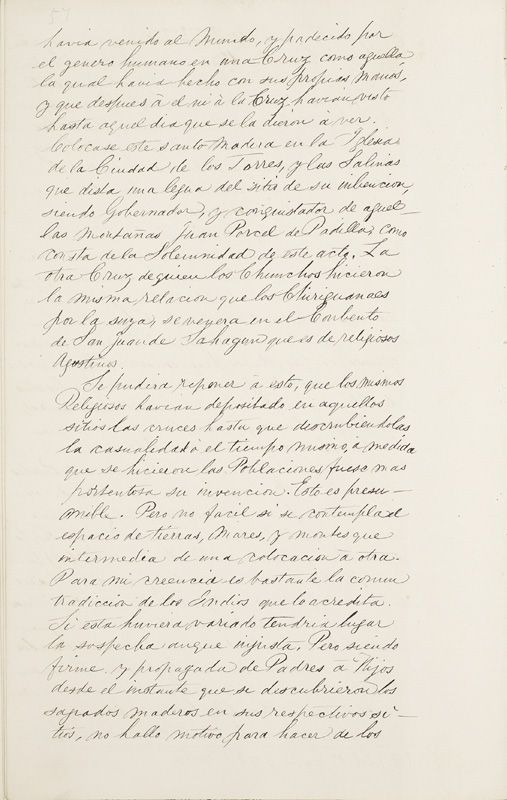 57
havia venido al Mundo, y padecido por
el genero humano en una Cruz como aquella,
la qual havia hecho con sus propias manos,
y que despues à el ni à la Cruz havian visto
hasta aquel dia que se la dieron à ver.
Colocase este santo Madera en la Iglesia
de la Ciudad de los Torres, y las Salinas
que dista una legua del sitio de su inbencion,
siendo Gobernador, y conquistador de aquel-
las montañas Juan Porcel de Padilla, como
consta de la Solemnidad de este acto. La
otra Cruz de quien los Chunchos hicieron
la misma relacion que los Chiriguanaes
por la suya, se venera en el Conbento
de San Juan de Sahagun que es de religiosos
Agustinos.
Se pudiera reponer à esto, que los mismos
Religiosos havian depositado en aquellos
sitios las cruces hasta que descrubiendolas
la casualidad ò el tiempo mismo, a medida
que se hicieron las Poblaciones fuese mas
portentosa su invencion. Esto es presu-
mible. Pero no facil si se contempla el
espacio de tierras, Mares, y montes que
intermedia de una colocacion a otra.
Para mi creencia es bastante la comun
tradiccion de los Indios que lo acredita.
Si esta huviera variado tendria lugar
la sospecha auque injusta. Pero siendo
firme y propagada de Padres a Hijos
desde el instante que se discubrieron los
sagrados maderos en sus respectivos si-
tios, no hallo motivo para hacer de los